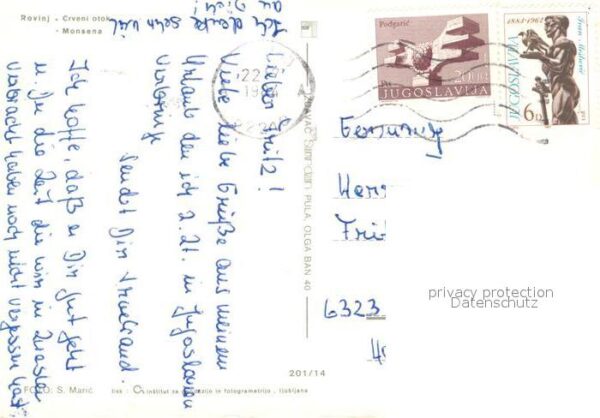 Rovinj - Crveni otok
- Monsena
Lieber Fritz!
Viele liebe Grüße aus meinem
Urlaub den ich z. Zt. in Jugoslawien
verbringe
Sendet Dir
Ich hoffe, daß es Dir gut geht
u. Du die Zeit die wir in
verbracht haben noch nicht vergessen hast.
Ich denke sehr viel
an Dich!
FOTO: S. Marić
tisk: institut za geodezijo in fotogrametrijo, ljubljana
201/14
PULA, OLGA BAN 40
22
Podgarić
2000
JUGOSLAVIJA
1883-1962
Ivan Meštrović
JUGOSLAVIJA
6
Germany
Herr
Frit
6323
privacy protection
Datenschutz